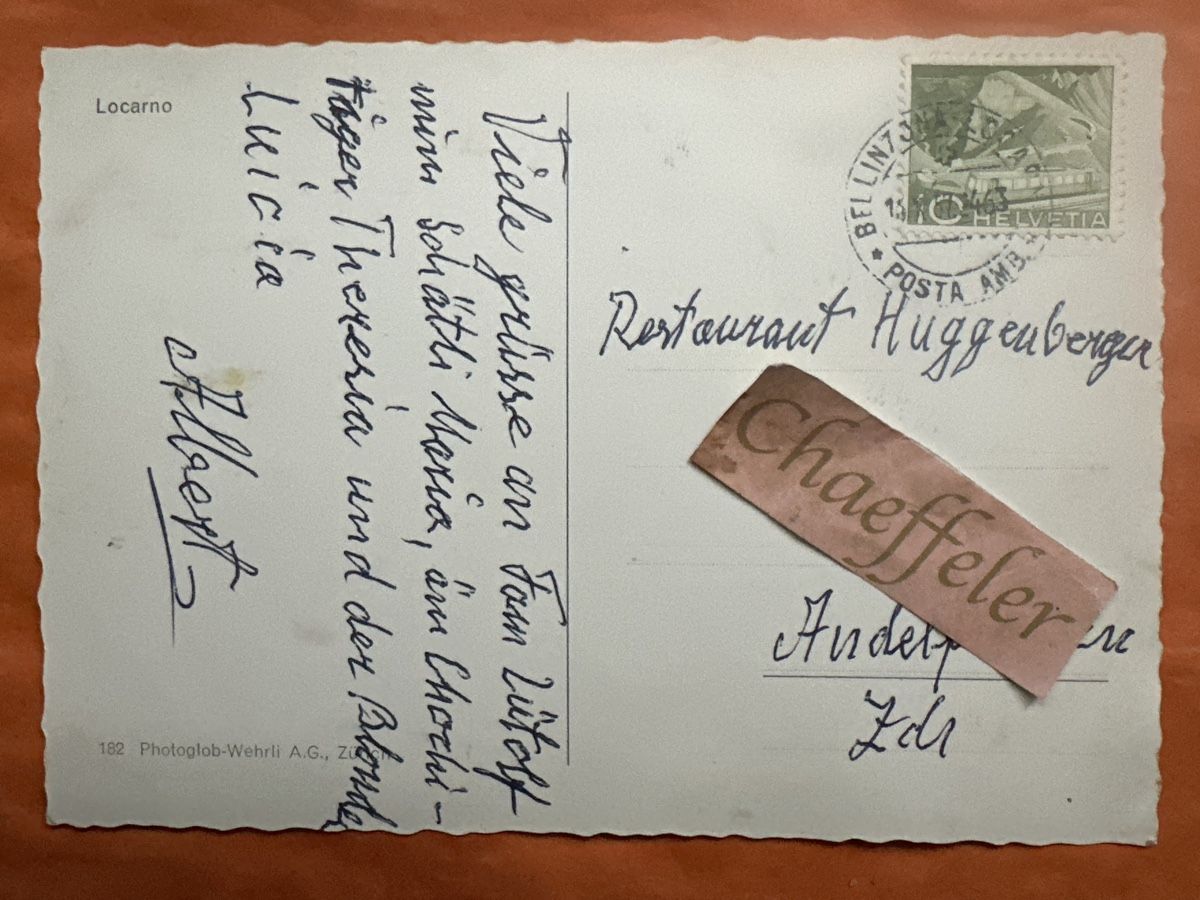 Locarno
Viele grüsse an Fam Lütolf
mim Schätli Maria, äm Chochi-
Täger Theresia und der Blonde
Lucia
Albert
182 Photoglob-Wehrli A.G., Zürich
BELLINZONA
POSTA AMB.
10 HELVETIA
Restaurant Huggenberger
Chaeffeler
Zch